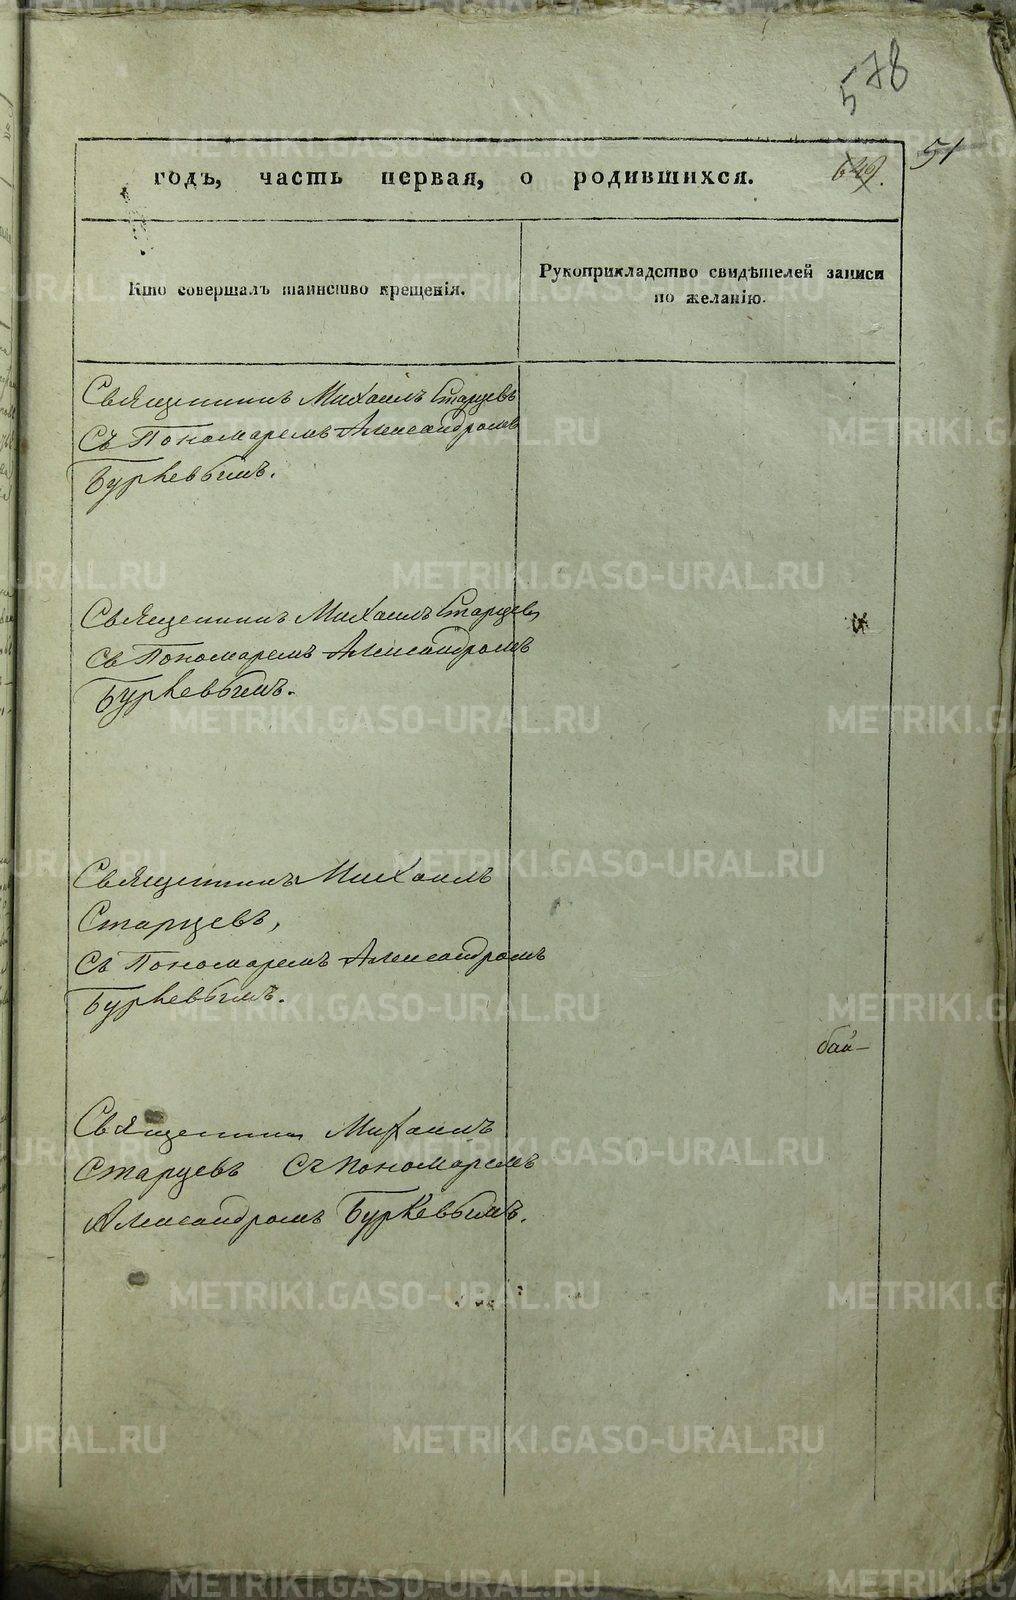 578
51
годъ, часть первая, о родившихся.
Кто совершалъ таинство крещенія.
Рукоприкладство свидѣтелей записи
по желанію.
Священникъ Михаилъ Старцевъ
Съ Пономаремъ Александромъ
Буркевымъ.
Священникъ Михаилъ Старцевъ
Съ Пономаремъ Александромъ
Буркевымъ.
Священникъ Михаилъ
Старцевъ,
Съ Пономаремъ Александромъ
Буркевымъ.
Священникъ Михаилъ
Старцевъ Съ Пономаремъ
Александромъ Буркевымъ.
METRIKI.GASO-URAL.RU